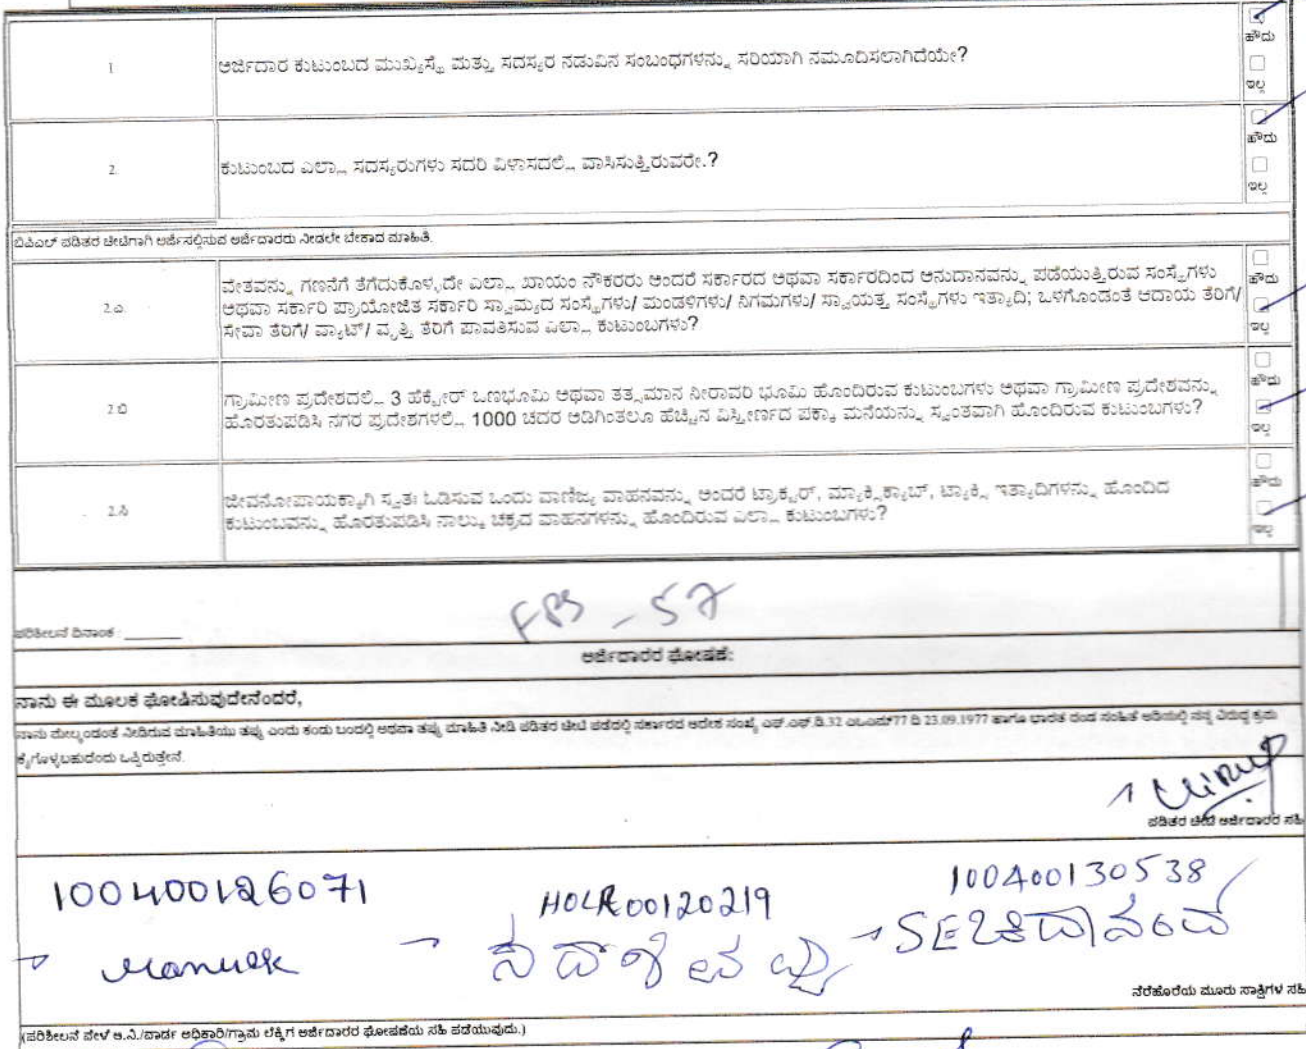 1
ಅರ್ಜಿದಾರ ಕುಟುಂಬದ ಮುಖ್ಯಸ್ಥೆ ಮತ್ತು ಸದಸ್ಯರ ನಡುವಿನ ಸಂಬಂಧಗಳನ್ನು ಸರಿಯಾಗಿ ನಮೂದಿಸಲಾಗಿದೆಯೇ?
ಹೌದು
ಇಲ್ಲ
2.
ಕುಟುಂಬದ ಎಲ್ಲಾ ಸದಸ್ಯರುಗಳು ಸದರಿ ವಿಳಾಸದಲ್ಲಿ ವಾಸಿಸುತ್ತಿರುವರೇ.?
ಹೌದು
ಇಲ್ಲ
ಬಿಪಿಎಲ್ ಪಡಿತರ ಚೀಟಿಗಾಗಿ ಅರ್ಜಿಸಲ್ಲಿಸುವ ಅರ್ಜಿದಾರರು ನೀಡಲೇ ಬೇಕಾದ ಮಾಹಿತಿ.
2.ಎ
ವೇತವನ್ನು ಗಣನೆಗೆ ತೆಗೆದುಕೊಳ್ಳದೇ ಎಲ್ಲಾ ಖಾಯಂ ನೌಕರರು ಅಂದರೆ ಸರ್ಕಾರದ ಅಥವಾ ಸರ್ಕಾರದಿಂದ ಅನುದಾನವನ್ನು ಪಡೆಯುತ್ತಿರುವ ಸಂಸ್ಥೆಗಳು
ಅಥವಾ ಸರ್ಕಾರಿ ಪ್ರಾಯೋಜಿತ ಸರ್ಕಾರಿ ಸ್ವಾಮ್ಯದ ಸಂಸ್ಥೆಗಳು/ ಮಂಡಳಿಗಳು/ ನಿಗಮಗಳು/ ಸ್ವಾಯತ್ತ ಸಂಸ್ಥೆಗಳು ಇತ್ಯಾದಿ; ಒಳಗೊಂಡಂತೆ ಆದಾಯ ತೆರಿಗೆ/
ಸೇವಾ ತೆರಿಗೆ/ ವ್ಯಾಟ್/ ವೃತ್ತಿ ತೆರಿಗೆ ಪಾವತಿಸುವ ಎಲ್ಲಾ ಕುಟುಂಬಗಳು?
ಹೌದು
ಇಲ್ಲ
2.ಬಿ
ಗ್ರಾಮೀಣ ಪ್ರದೇಶದಲ್ಲಿ 3 ಹೆಕ್ಟೇರ್ ಒಣಭೂಮಿ ಅಥವಾ ತತ್ಸಮಾನ ನೀರಾವರಿ ಭೂಮಿ ಹೊಂದಿರುವ ಕುಟುಂಬಗಳು ಅಥವಾ ಗ್ರಾಮೀಣ ಪ್ರದೇಶವನ್ನು
ಹೊರತುಪಡಿಸಿ ನಗರ ಪ್ರದೇಶಗಳಲ್ಲಿ 1000 ಚದರ ಅಡಿಗಿಂತಲೂ ಹೆಚ್ಚಿನ ವಿಸ್ತೀರ್ಣದ ಪಕ್ಕಾ ಮನೆಯನ್ನು ಸ್ವಂತವಾಗಿ ಹೊಂದಿರುವ ಕುಟುಂಬಗಳು?
ಹೌದು
ಇಲ್ಲ
2.ಸಿ
ಜೀವನೋಪಾಯಕ್ಕಾಗಿ ಸ್ವತಃ ಓಡಿಸುವ ಒಂದು ವಾಣಿಜ್ಯ ವಾಹನವನ್ನು ಅಂದರೆ ಟ್ರಾಕ್ಟರ್, ಮ್ಯಾಕ್ಸಿಕ್ಯಾಬ್, ಟ್ಯಾಕ್ಸಿ ಇತ್ಯಾದಿಗಳನ್ನು ಹೊಂದಿದ
ಕುಟುಂಬವನ್ನು ಹೊರತುಪಡಿಸಿ ನಾಲ್ಕು ಚಕ್ರದ ವಾಹನಗಳನ್ನು ಹೊಂದಿರುವ ಎಲ್ಲಾ ಕುಟುಂಬಗಳು?
ಹೌದು
ಇಲ್ಲ
57
ಪರಿಶೀಲನೆ ದಿನಾಂಕ : ________
ಅರ್ಜಿದಾರರ ಘೋಷಣೆ:
ನಾನು ಈ ಮೂಲಕ ಘೋಷಿಸುವುದೇನೆಂದರೆ,
ನಾನು ಮೇಲ್ಕಂಡಂತೆ ನೀಡಿರುವ ಮಾಹಿತಿಯು ತಪ್ಪು ಎಂದು ಕಂಡು ಬಂದಲ್ಲಿ ಅಥವಾ ತಪ್ಪು ಮಾಹಿತಿ ನೀಡಿ ಪಡಿತರ ಚೀಟಿ ಪಡೆದಲ್ಲಿ ಸರ್ಕಾರದ ಆದೇಶ ಸಂಖ್ಯೆ ಎಫ್.ಎಫ್.ಡಿ.32 ಎಐಎಮ್77 ದಿ 23.09.1977 ಹಾಗೂ ಭಾರತ ದಂಡ ಸಂಹಿತೆ ಅಡಿಯಲ್ಲಿ ನನ್ನ ವಿರುದ್ಧ ಕ್ರಮ
ಕೈಗೊಳ್ಳಬಹುದೆಂದು ಒಪ್ಪಿರುತ್ತೇನೆ.
ಪಡಿತರ ಚೀಟಿ ಅರ್ಜಿದಾರರ ಸಹಿ
100400126071
HOLR00120219
100400130538
ನೆರೆಹೊರೆಯ ಮೂರು ಸಾಕ್ಷಿಗಳ ಸಹಿ
(ಪರಿಶೀಲನೆ ವೇಳೆ ಆ.ನಿ./ವಾರ್ಡ ಅಧಿಕಾರಿ/ಗ್ರಾಮ ಲೆಕ್ಕಿಗ ಅರ್ಜಿದಾರರ ಘೋಷಣೆಯ ಸಹಿ ಪಡೆಯುವುದು.)